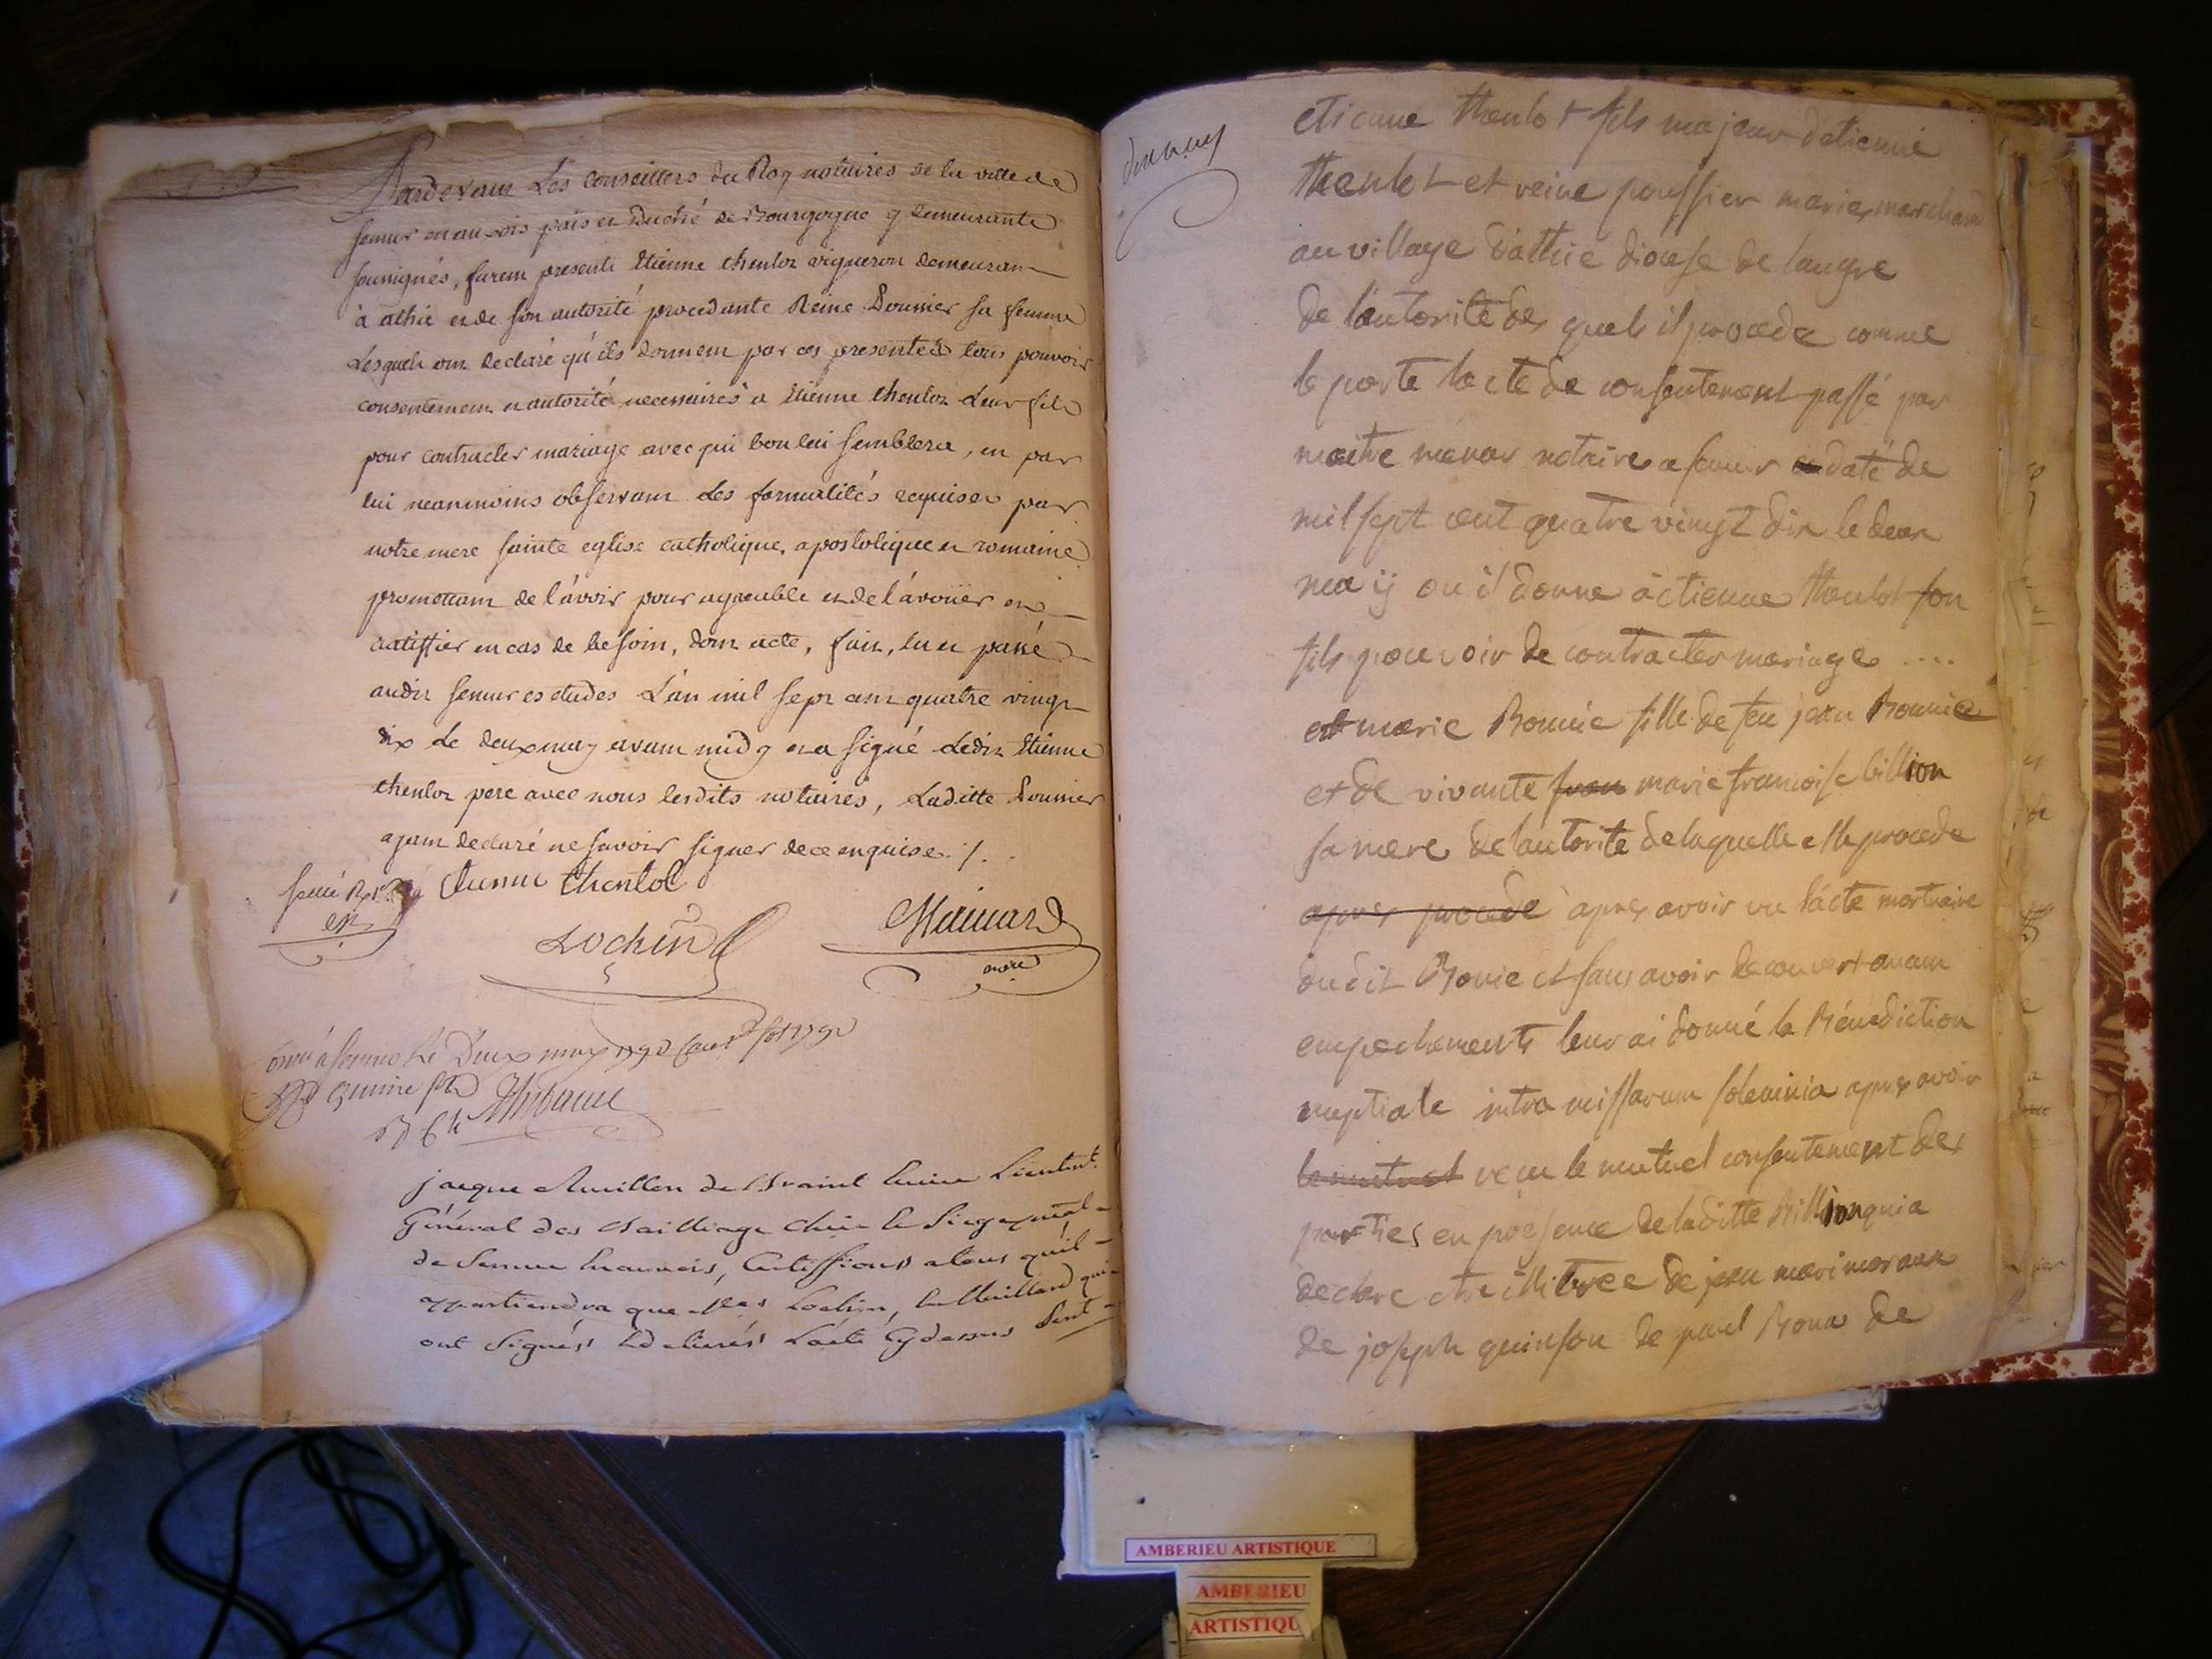 Pardevant Les Conseillers du Roy notaires de la ville de
semur en auxois païs et Duché de Bourgogne y demeurants
soussignés, furent presents Etienne thenlot vigneron demeurant
à athie et de son autorité procedante Reine Poussier sa femme
Lesquels ont declaré qu'ils donnent par ces presentes tous pouvoir
consentement et autorité necessaires à Etienne thenlot Leur fils
pour contracter mariage avec qui bon lui semblera, en par
lui neanmoins observant Les formalités requises par
notre mere sainte eglise catholique, apostolique et romaine
promettant de l'avoir pour agreable et de l'avoüer et
ratiffier en cas de besoin, dont acte, fait, lu et passé
audit semur es etudes L'an mil sept cent quatre vingt
dix Le deux may avant midy et a signé Ledit Etienne
thenlot pere avec nous lesdits notaires, Laditte Poussier
ayant declaré ne savoir signer de ce enquise ./.
Etienne thenlot
Lochin
Menard
a semur Le Deux may 1790
quinze
jacque de Lieutent.
Général des Bailliage le Siege
de Semur , Certiffions a tous quil
appartiendra que Mes Lochin, qui
ont Signés Et delivrés Lacte Cy dessus Sont
etienne thenlot fils majeur d'etienne
thenlot et reine poussier mariés marchand
au village d'athie diocese de langre
de l'autorité des quels il procede comme
le porte l'acte de consentement passé par
maitre menar notaire a semur daté de
mil sept cent quatre vingt dix le deux
maij ou il donne à etienne thenlot son
fils pouvoir de contracter mariage ....
et marie Bonnie fille de feu jean Bonnie
et de vivante fran marie francoise billion
sa mere de l'autorité de laquelle elle procede
apres procede apres avoir vu l'acte mortuaire
dudit Bonie et sans avoir decouvert aucun
empechements leur ai donné la Bénédiction
nuptiale intra missarum soleminia apres avoir
le mutuel recu le mutuel consentement des
parties en presence de laditte Billion qui a
declare etre illitree de jean
de joseph quinson de paul Bona de
AMBERIEU ARTISTIQUE
AMBERIEU
ARTISTIQU